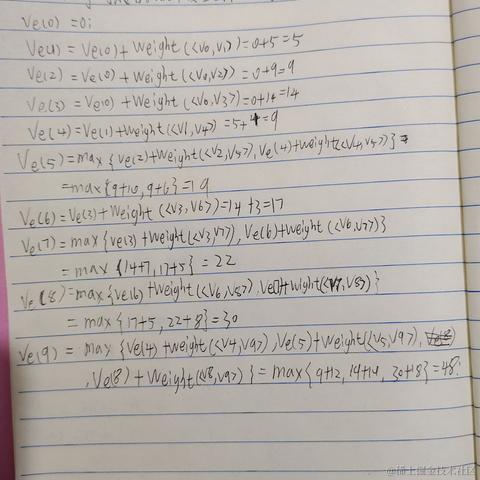 Ve(0) = 0;
Ve(1) = Ve(0) + Weight(<V0, V1>) = 0+5 = 5
Ve(2) = Ve(0) + Weight(<V0, V2>) = 0+9 = 9
Ve(3) = Ve(0) + Weight(<V0, V3>) = 0+14 = 14
Ve(4) = Ve(1) + Weight(<V1, V4>) = 5+4 = 9
Ve(5) = max{Ve(2)+Weight(<V2,V5>), Ve(4)+Weight(<V4,V5>)} =
= max{9+10, 9+6} = 19
Ve(6) = Ve(3) + Weight(<V3, V6>) = 14+3 = 17
Ve(7) = max{Ve(3)+Weight(<V3,V7>), Ve(6)+Weight(<V6,V7>)}
= max{14+7, 17+5} = 22
Ve(8) = max{Ve(6)+Weight(<V6,V8>), Ve(7)+Wight(<V7,V8>)}
= max{17+5, 22+8} = 30
Ve(9) = max{Ve(4)+Weight(<V4,V9>), Ve(5)+Weight(<V5,V9>),
, Ve(8)+Weight(<V8,V9>)} = max{9+12, 19+14, 30+18} = 48.
@稀土掘金技术社区